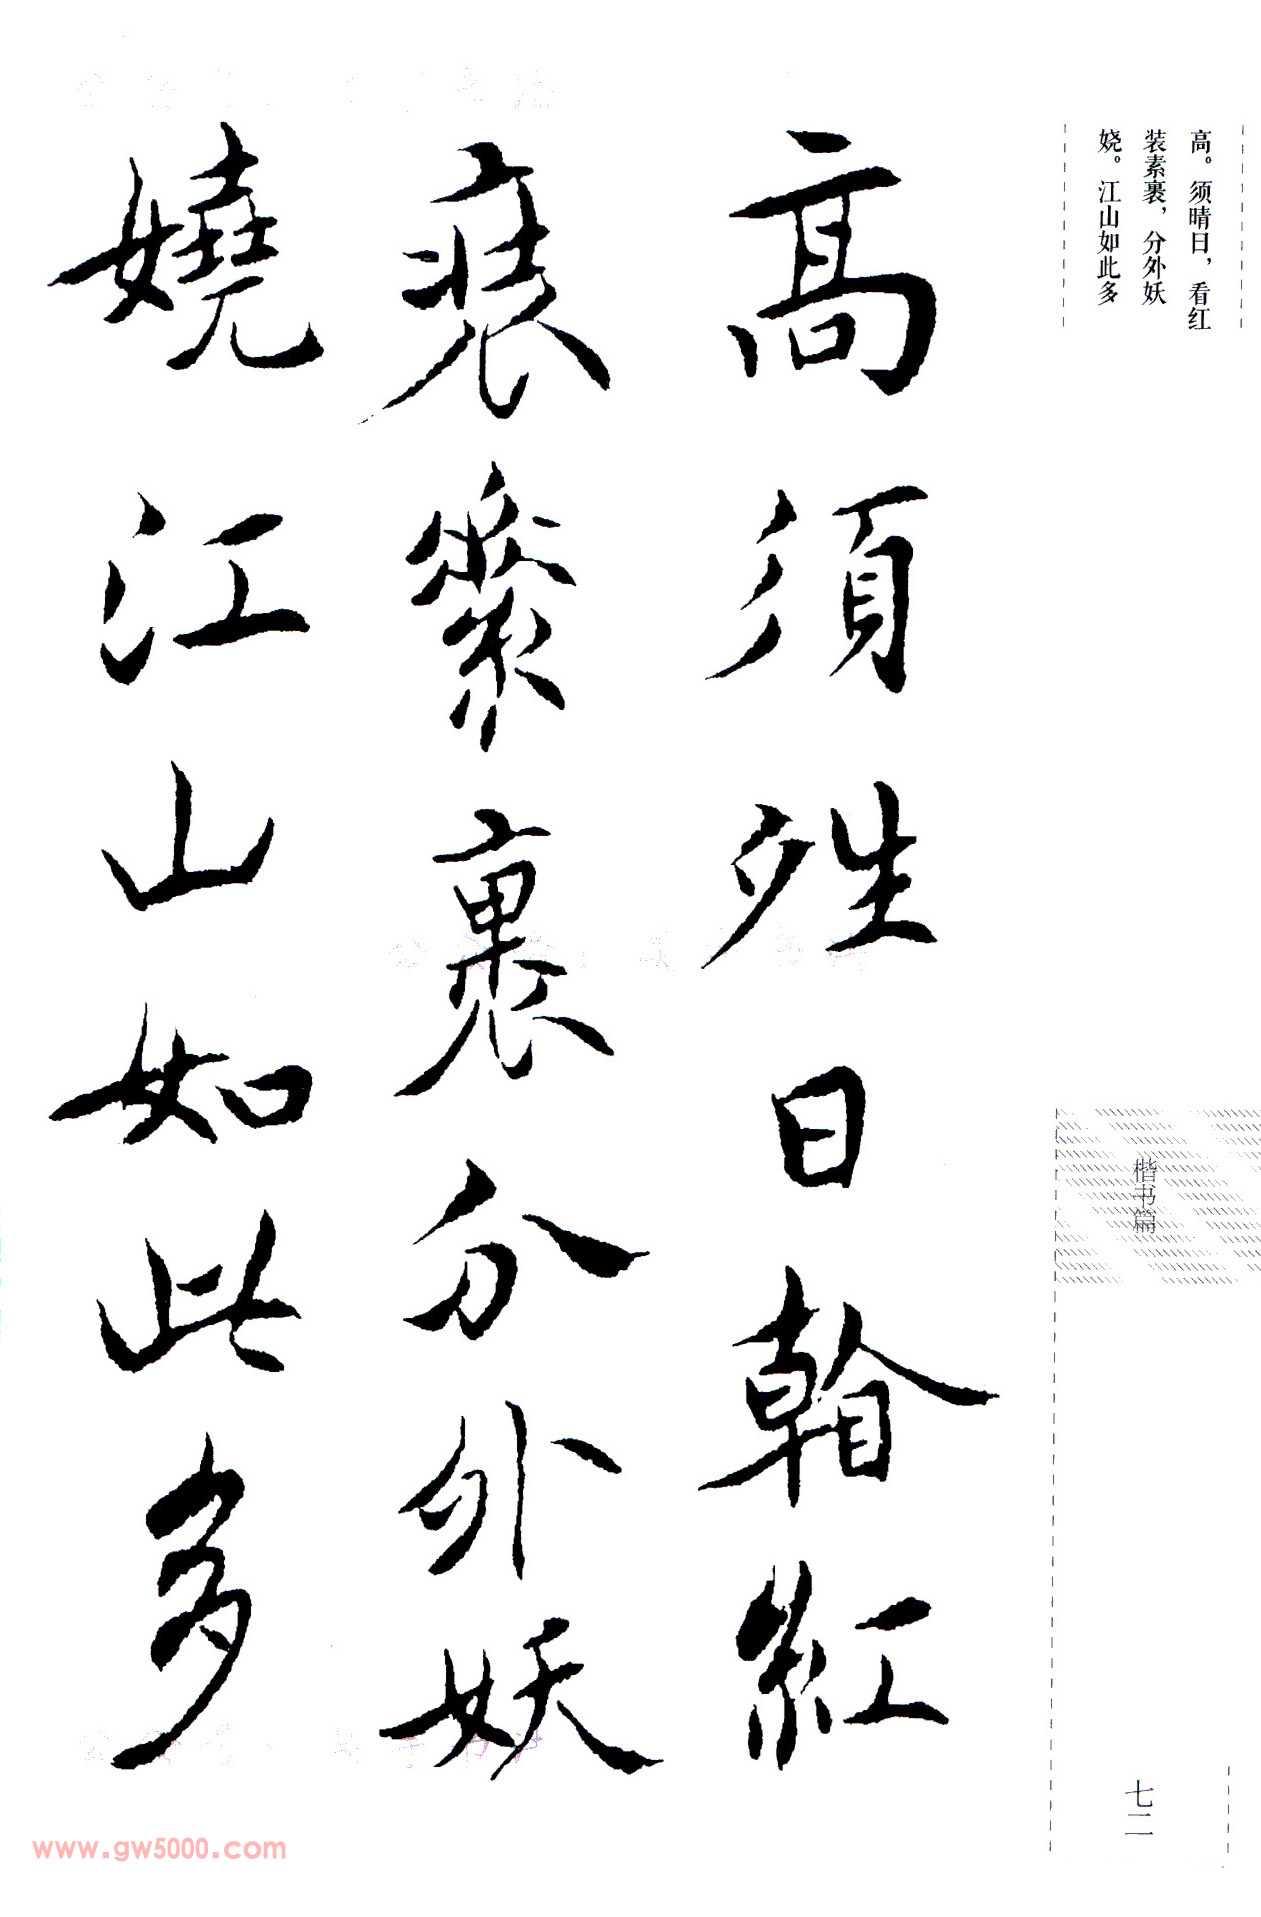 高。须晴日，看红
装素裹，分外妖
娆。江山如此多
楷书篇
七二
高須夝日紅
裝素裹分外妖
嬈江山如此多
www.gw5000.com